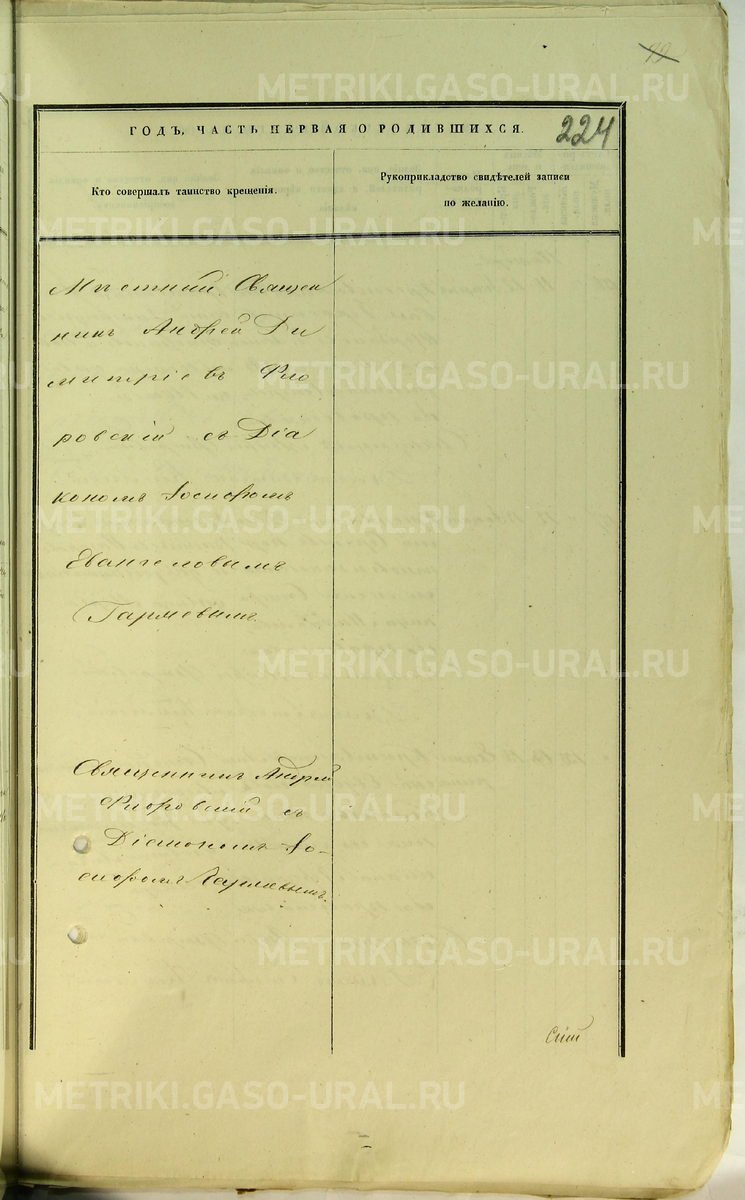 99
ГОДЪ, ЧАСТЬ ПЕРВАЯ О РОДИВШИХСЯ.
224
Кто совершалъ таинство крещенія.
Рукоприкладство свидѣтелей записи
по желанію.
Мѣстный Священ
никъ Андрей Ди
митріевъ Фло
ровскій съ Діа
кономъ Іосифомъ
Евангеловымъ
Гаряевымъ.
Священникъ Андрей
Флоровскій съ
Діакономъ Іо-
сифомъ Гаряевымъ.
Сій
METRIKI.GASO-URAL.RU